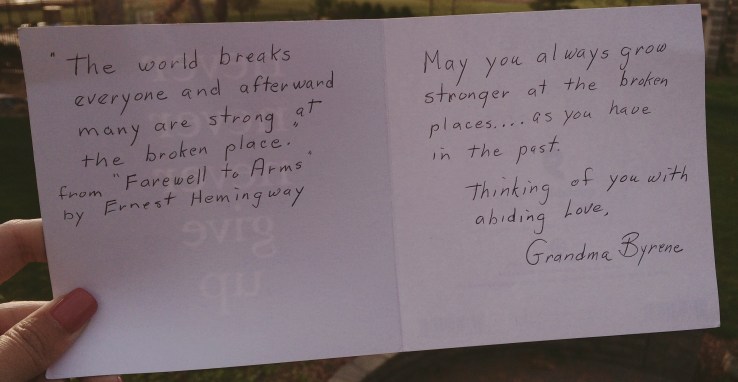 "The world breaks
everyone and afterward
many are strong at
the broken place."
from "Farewell to Arms"
by Ernest Hemingway
never
never
never
give
up
May you always grow
stronger at the broken
places.... as you have
in the past.
Thinking of you with
abiding Love,
Grandma Byrene